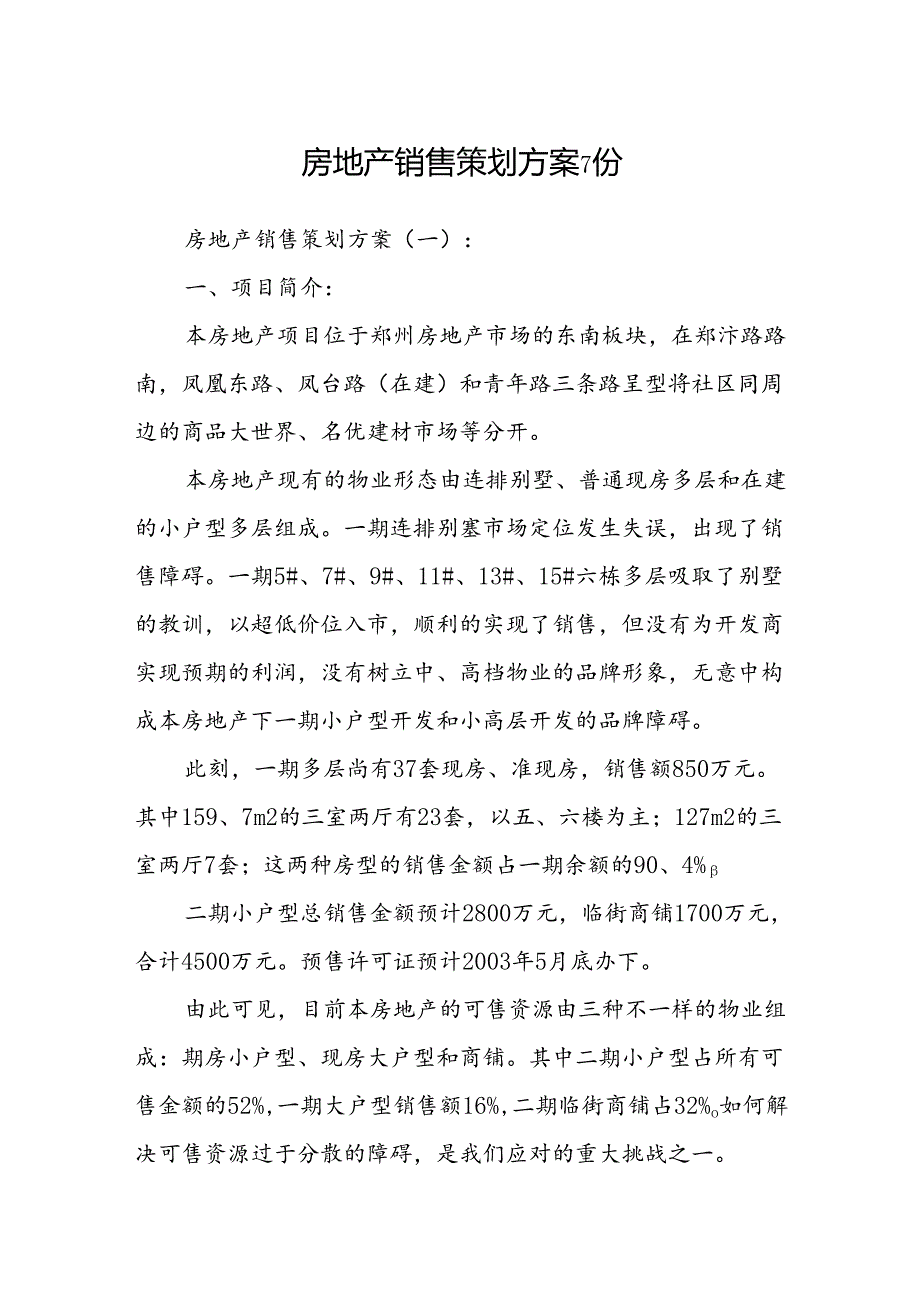 房地产销售策划方案7份
房地产销售策划方案（一）：
一、项目简介：
本房地产项目位于郑州房地产市场的东南板块，在郑汴路路
南，凤凰东路、凤台路（在建）和青年路三条路呈型将社区同周
边的商品大世界、名优建材市场等分开。
本房地产现有的物业形态由连排别墅、普通现房多层和在建
的小户型多层组成。一期连排别塞市场定位发生失误，出现了销
售障碍。一期5#、7#、9#、11#、13#、15#六栋多层吸取了别墅
的教训，以超低价位入市，顺利的实现了销售，但没有为开发商
实现预期的利润，没有树立中、高档物业的品牌形象，无意中构
成本房地产下一期小户型开发和小高层开发的品牌障碍。
此刻，一期多层尚有37套现房、准现房，销售额850万元。
其中159、7m2的三室两厅有23套，以五、六楼为主；127m2的三
室两厅7套；这两种房型的销售金额占一期余额的90、4%β
二期小户型总销售金额预计2800万元，临街商铺1700万元，
合计4500万元。预售许可证预计2003年5月底办下。
由此可见，目前本房地产的可售资源由三种不一样的物业组
成：期房小户型、现房大户型和商铺。其中二期小户型占所有可
售金额的52%,一期大户型销售额16%,二期临街商铺占32%o如何解
决可售资源过于分散的障碍，是我们应对的重大挑战之一。